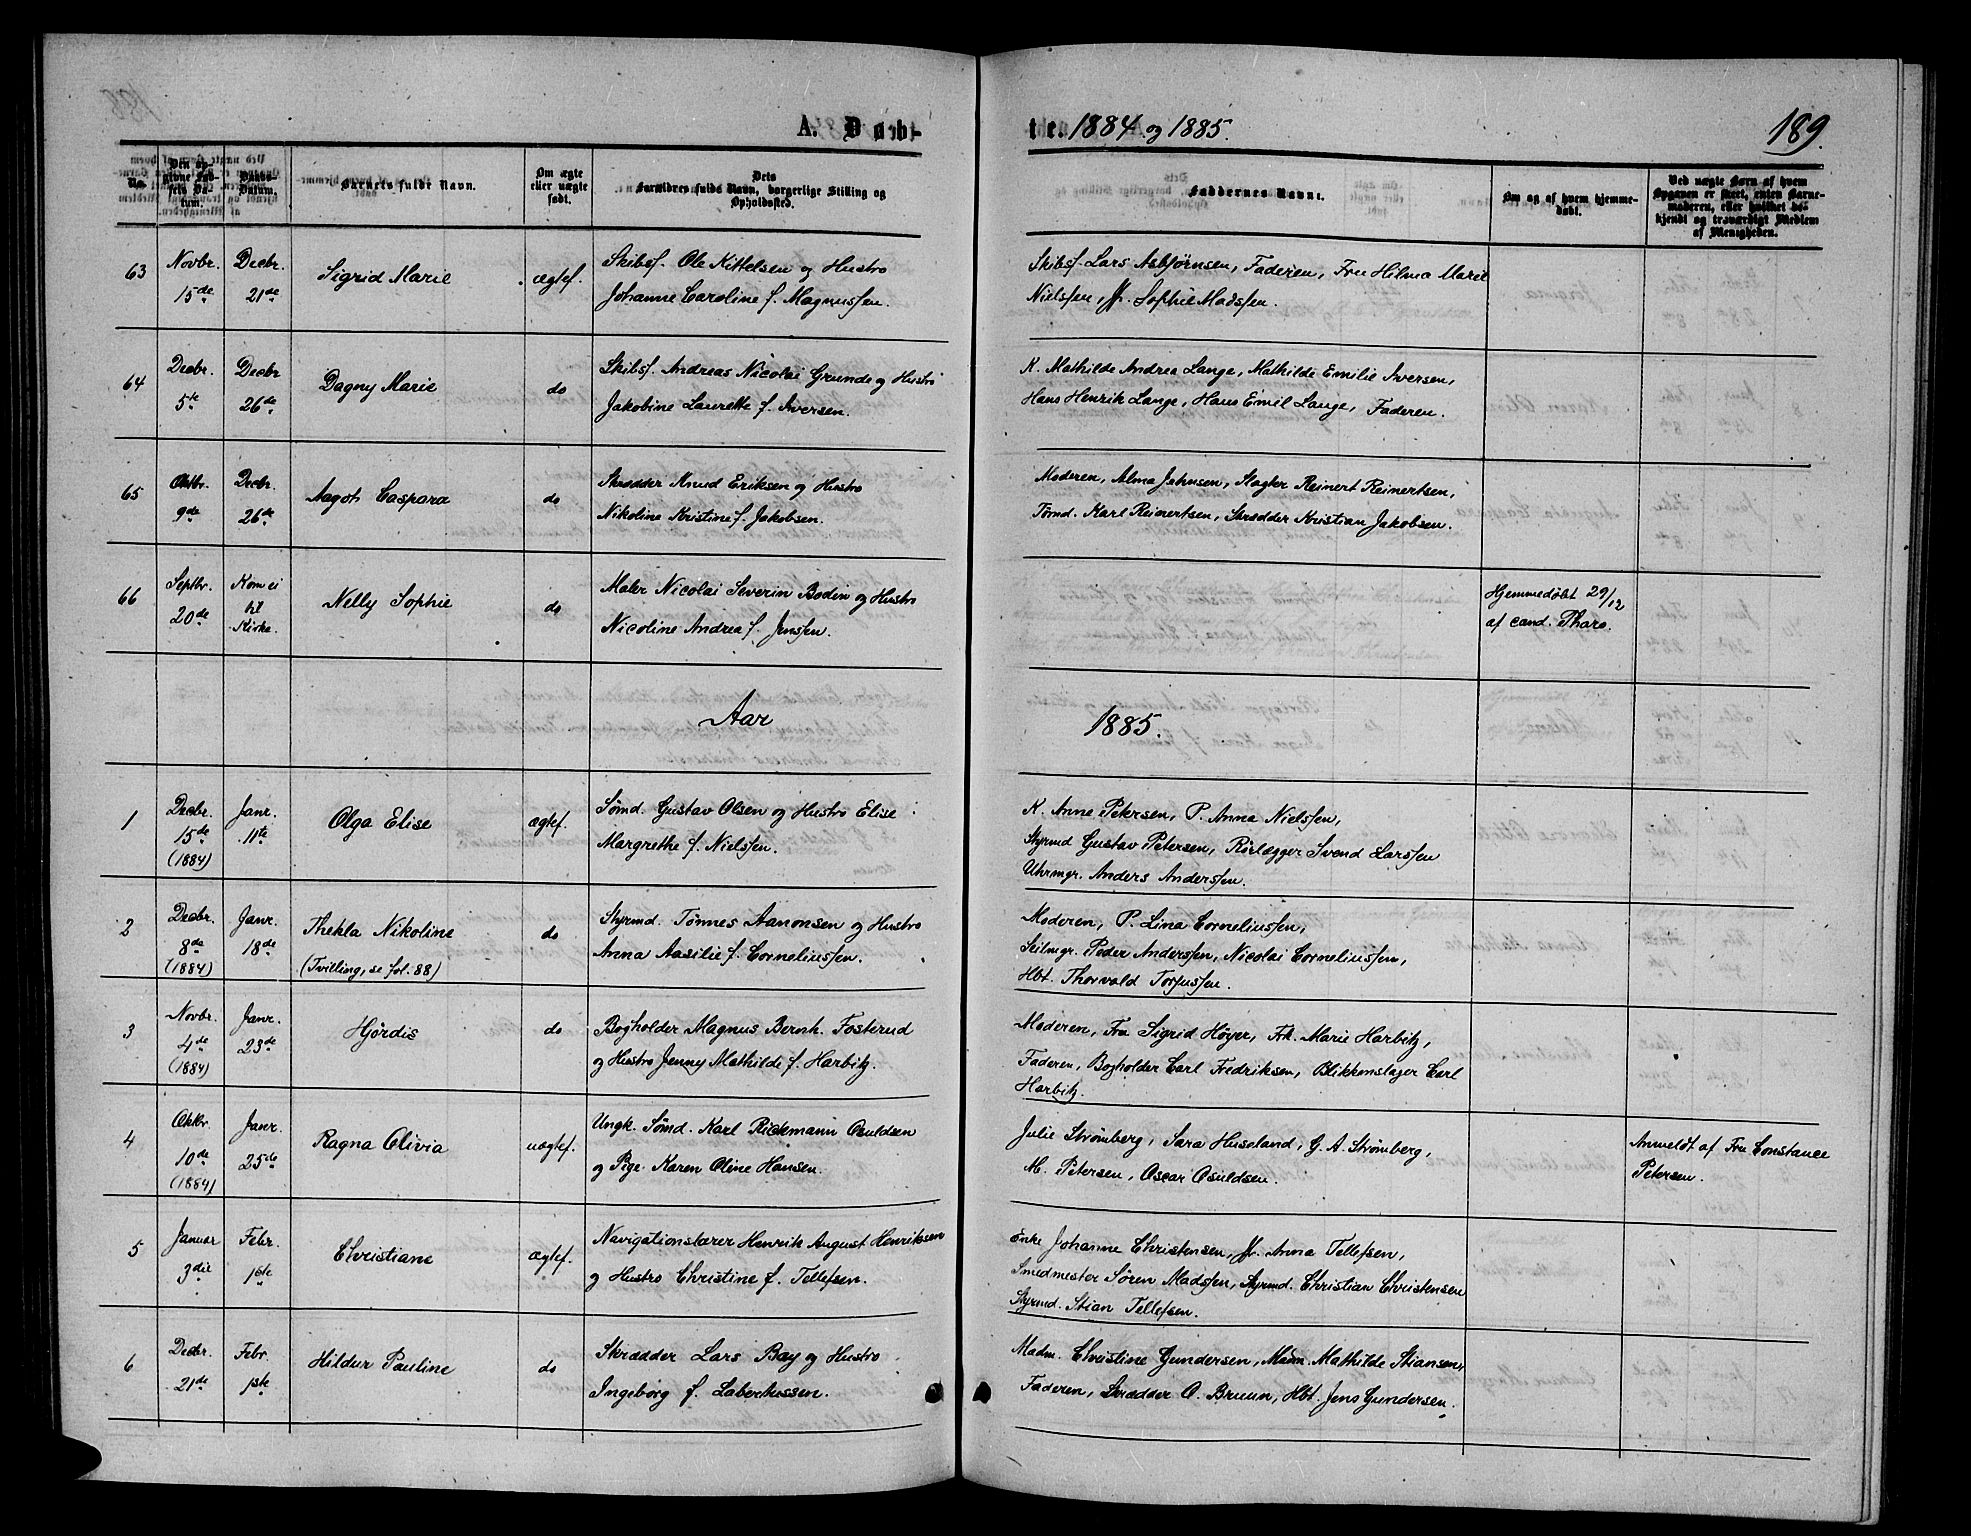 A. Døbte 1884 og 1885.
189.
No.
Den opgivne Fødsels Datum.
Daabs-Datum.
Barnets fulde Navn.
Om ægte eller uægte født.
Dets Forældres fulde Navn, borgerlige Stilling og Opholdssted.
Faddernes Navne.
Om og af hvem hjemmedøbt.
Ved uægte Børn af hvem Opgaven er skeet, enten Barnemoderen, eller hvilket bekjendt og troværdigt Medlem af Menigheden.
63
Novbr.
15de
Decbr.
21de
Sigrid Marie
ægtef.
Skibsf. Ole Kittelsen og Hustro
Johanne Caroline f. Magnussen.
Skibsf. Lars Asbjørnsen, Faderen, Fru Hilma Marie
Nielssen, Jf. Sophie Madssen.
64
Decbr.
5te
Decbr
26de
Dagny Marie
do
Skibsf. Andreas Nicolai Grunde og Hustro
Jakobine Laurette f. Iversen.
K. Mathilde Andrea Lange, Mathilde Emilie Iversen,
Hans Henrik Lange, Hans Emil Lange, Faderen.
65
Oktbr.
9de
Decbr.
26de
Aagot Caspara
do
Skrædder Knud Eriksen og Hustro
Nikoline Kristine f. Jakobsen.
Moderen, Alma Johnsen, Slagter Reinert Reinertsen,
Tømd. Karl Reinertsen, Skrædder Kristian Jakobsen.
66
Septbr.
20de
Kom ei
til
Kirke.
Nelly Sophie
do
Maler Nicolai Severin Bodin og Hustro
Nicoline Andrea f. Jenssen.
Hjemmedøbt 29/12
af cand. Thare.
Aar 1885.
1
Decbr.
15de
(1884)
Janr.
11te
Olga Elise
ægtef.
Sømd. Gustav Olsen og Hustro Elise
Margrethe f. Nielssen.
K. Anne Petersen, P. Anna Nielssen,
Styrmd Gustav Petersen, Rørlægger Svend Larssen
Uhrmgr. Anders Anderssen.
2
Decbr.
8de
(1884)
Janr.
18de
Thekla Nikoline
(Tvilling, se fol. 88)
do
Styrmd. Tønnes Aanonsen og Hustro
Anna Aasilie f. Corneliussen.
Moderen, P. Lina Corneliussen,
Seilmgr. Peder Anderssen, Nicolai Corneliussen,
Hbt. Thorvald Torjussen.
3
Novbr.
4de
(1884)
Janr.
23de
Hjørdis
do
Bogholder Magnus Bernh. Fosterud
og Hustro Jenny Mathilde f. Harbitz.
Moderen, Fru Sigrid Høyer, Frk. Marie Harbitz,
Faderen, Bogholder Carl Fredriksen, Blikkenslager Carl
Harbitz.
4
Oktbr.
10de
(1884)
Janr.
25de
Ragna Olivia
uægtef.
Ungk. Sømd. Karl Rickmann Osuldsen
og Pige Karen Oline Hansen.
Julie Strømberg, Sara Huseland, G. A. Strømberg,
M. Petersen, Oscar Osuldsen.
Anmeldt af Fru Constance
Petersen.
5
Januar
3die
Febr.
1ste
Christiane
ægtef.
Navigationslærer Henrik August Henriksen
og Hustro Christine f. Tellefsen.
Enke Johanne Christensen, Jf. Anna Tellefsen,
Smedmester Søren Madssen, Styrmd. Christian Christensen
Styrmd. Stian Tellefsen.
6
Decbr.
21de
Febr.
1ste
Hildur Pauline
do
Skrædder Lars Bay og Hustro
Ingeborg f. Laberhussen.
Madm. Christine Gundersen, Madm. Mathilde Stiansen,
Faderen, Skrædder O. Bruun, Hbt. Jens Gundersen.